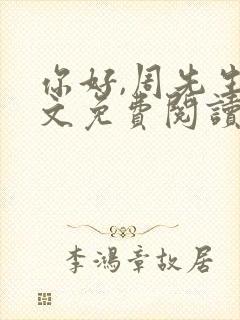 你好,周先生
文免费閱讀
李鴻章故居